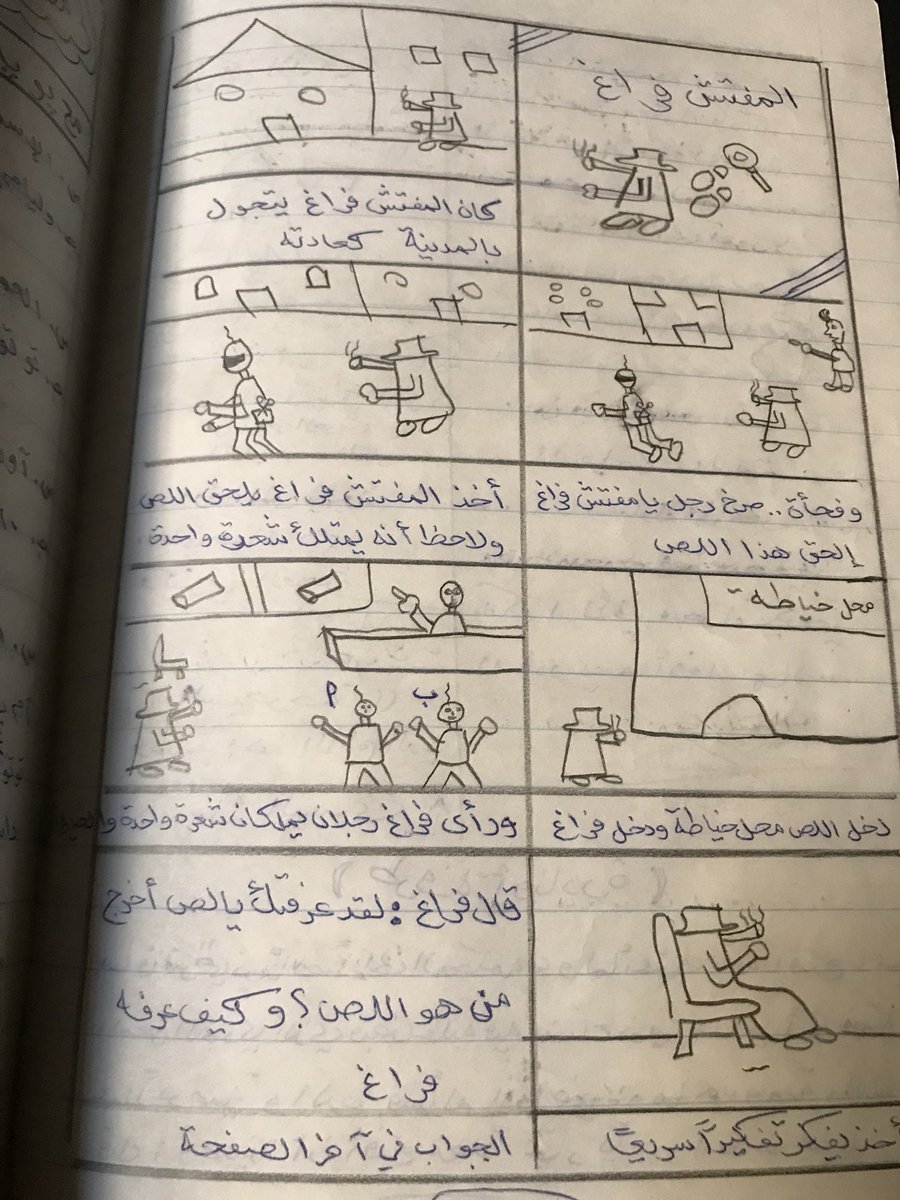 المفتش فراغ
كان المفتش فراغ يتجول
بالمدينة كعادته
وفجأة.. صرخ رجل يا مفتش فراغ
إلحق هذا اللص
أخذ المفتش فراغ يلحق اللص
ولاحظ أنه يمتلك شعرة واحدة
محل خياطة
دخل اللص محل خياطة ودخل فراغ
ب
م
ورأى فراغ رجلان يملكان شعرة واحدة
أخذ يفكر تفكيراً سريعاً
قال فراغ: لقد عرفتك يا لص أخرج
من هو اللص؟ وكيف عرفه
فراغ
الجواب في آخر الصفحة